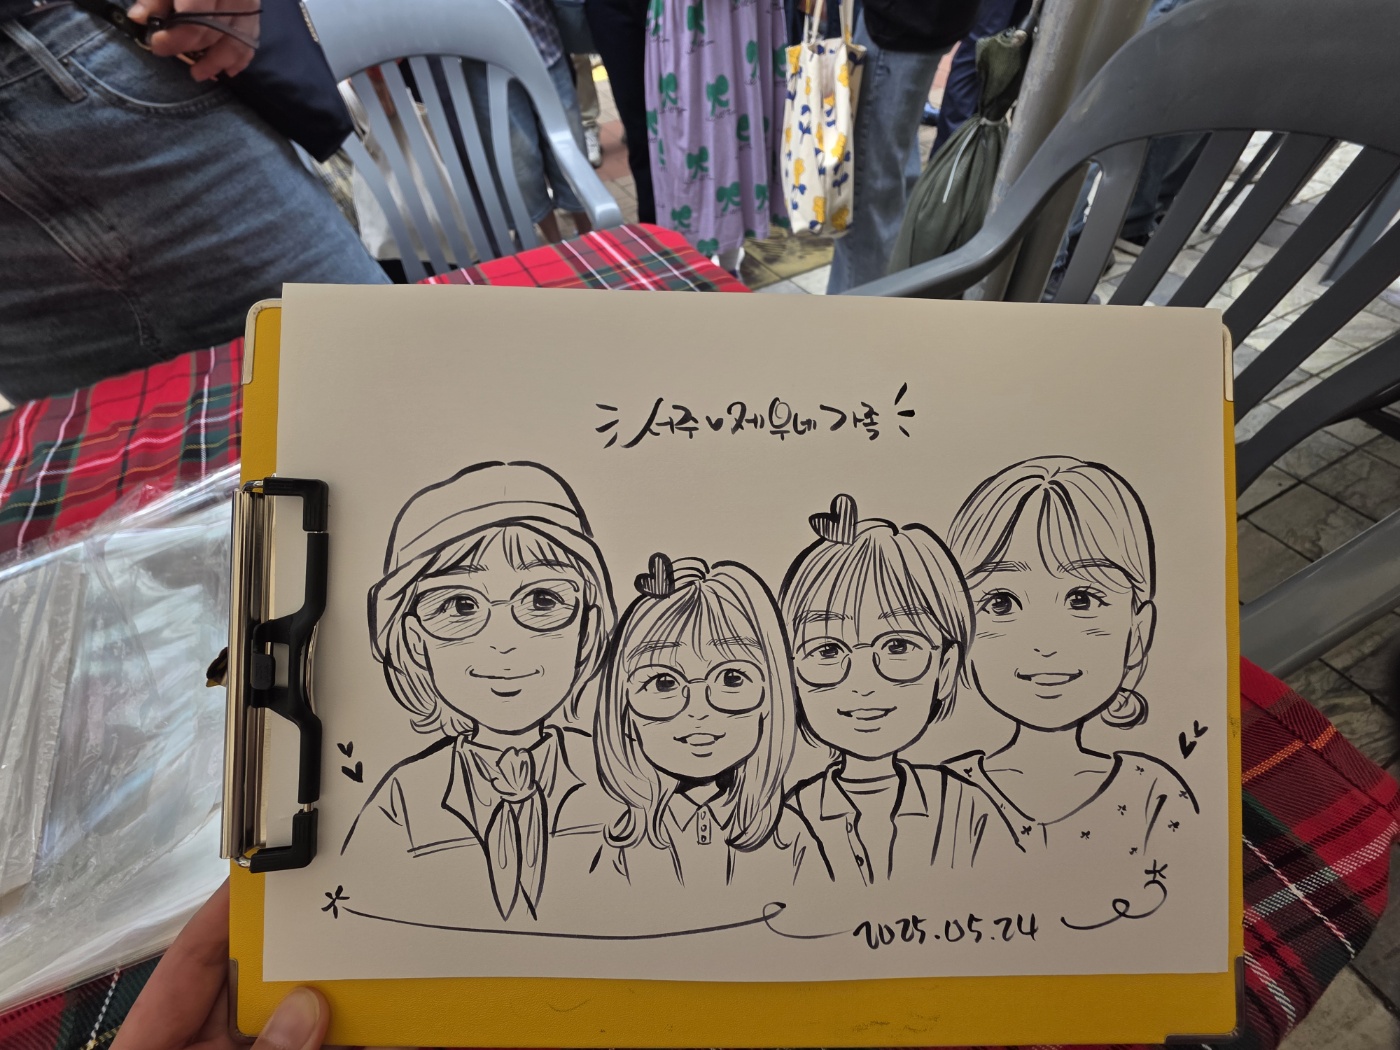 서주♥제우네 가족
2025.05.24